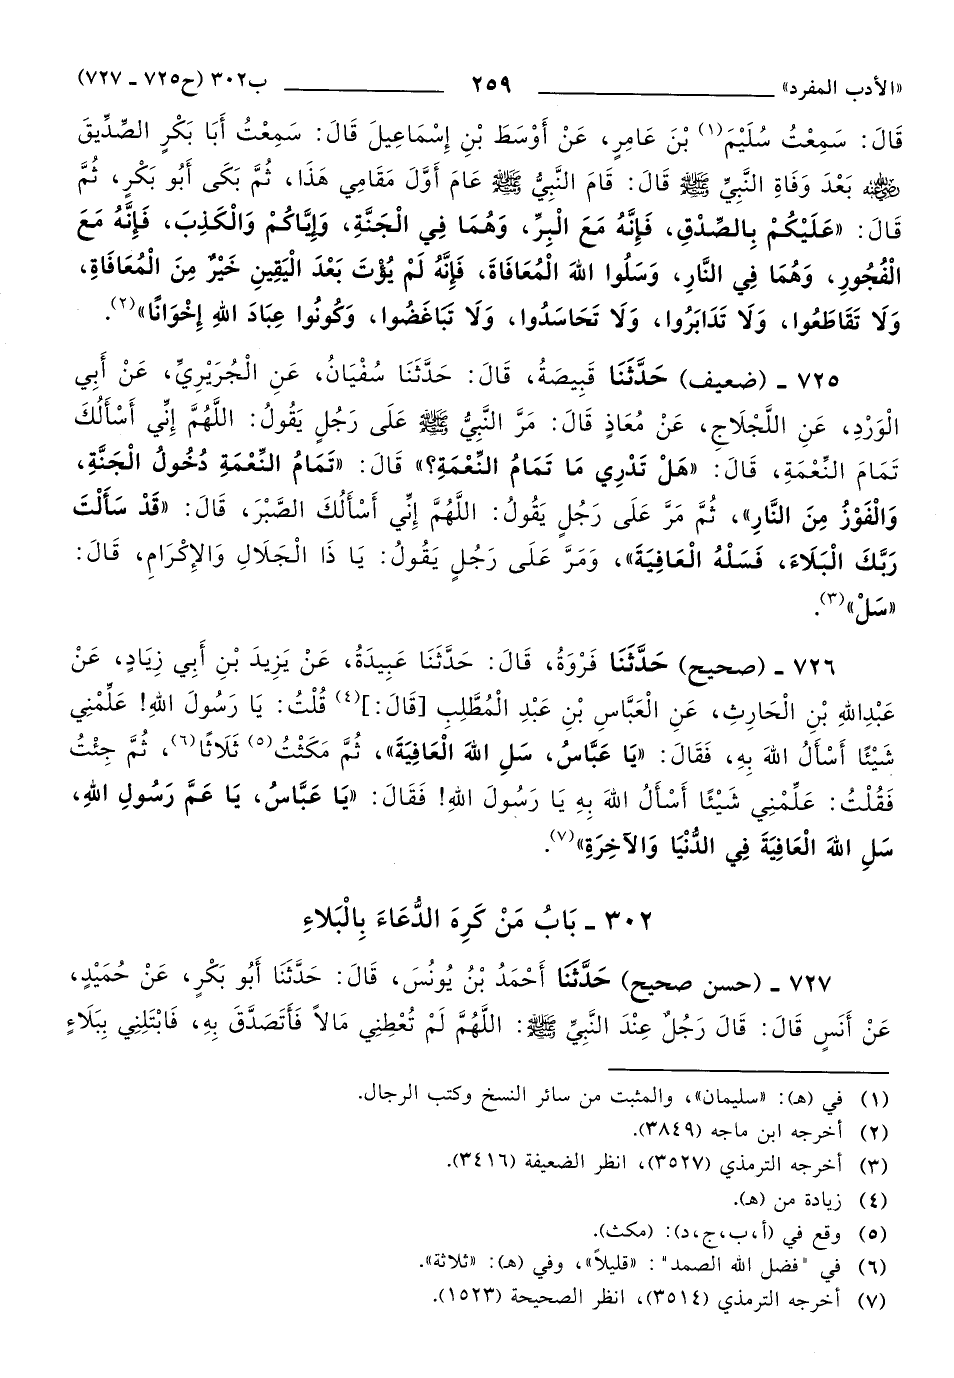 «الأدب المفرد» ٢٥٩ ب٣٠٢ (ح٧٢٥ ـ ٧٢٧)
قَالَ: سَمِعْتُ سُلَيْمَ(١) بْنَ عَامِرٍ، عَنْ أَوْسَطَ بْنِ إِسْمَاعِيلَ قَالَ: سَمِعْتُ أَبَا بَكْرٍ الصِّدِّيقَ
رضي الله عنه بَعْدَ وَفَاةِ النَّبِيِّ ﷺ قَالَ: قَامَ النَّبِيُّ ﷺ عَامَ أَوَّلَ مَقَامِي هَذَا، ثُمَّ بَكَى أَبُو بَكْرٍ، ثُمَّ
قَالَ: «عَلَيْكُمْ بِالصِّدْقِ، فَإِنَّهُ مَعَ الْبِرِّ، وَهُمَا فِي الْجَنَّةِ، وَإِيَّاكُمْ وَالْكَذِبَ، فَإِنَّهُ مَعَ
الْفُجُورِ، وَهُمَا فِي النَّارِ، وَسَلُوا اللهَ الْمُعَافَاةَ، فَإِنَّهُ لَمْ يُؤْتَ بَعْدَ الْيَقِينِ خَيْرٌ مِنَ الْمُعَافَاةِ،
وَلَا تَقَاطَعُوا، وَلَا تَدَابَرُوا، وَلَا تَحَاسَدُوا، وَلَا تَبَاغَضُوا، وَكُونُوا عِبَادَ اللهِ إِخْوَانًا»(٢).
٧٢٥ ـ (ضعيف) حَدَّثَنَا قَبِيصَةُ، قَالَ: حَدَّثَنَا سُفْيَانُ، عَنِ الْجُرَيْرِيِّ، عَنْ أَبِي
الْوَرْدِ، عَنِ اللَّجْلَاجِ، عَنْ مُعَاذٍ قَالَ: مَرَّ النَّبِيُّ ﷺ عَلَى رَجُلٍ يَقُولُ: اللَّهُمَّ إِنِّي أَسْأَلُكَ
تَمَامَ النِّعْمَةِ، قَالَ: «هَلْ تَدْرِي مَا تَمَامُ النِّعْمَةِ؟» قَالَ: «تَمَامُ النِّعْمَةِ دُخُولُ الْجَنَّةِ،
وَالْفَوْزُ مِنَ النَّارِ»، ثُمَّ مَرَّ عَلَى رَجُلٍ يَقُولُ: اللَّهُمَّ إِنِّي أَسْأَلُكَ الصَّبْرَ، قَالَ: «قَدْ سَأَلْتَ
رَبَّكَ الْبَلَاءَ، فَسَلْهُ الْعَافِيَةَ»، وَمَرَّ عَلَى رَجُلٍ يَقُولُ: يَا ذَا الْجَلَالِ وَالإِكْرَامِ، قَالَ:
«سَلْ»(٣).
٧٢٦ ـ (صحيح) حَدَّثَنَا فَرْوَةُ، قَالَ: حَدَّثَنَا عَبِيدَةُ، عَنْ يَزِيدَ بْنِ أَبِي زِيَادٍ، عَنْ
عَبْدِاللهِ بْنِ الْحَارِثِ، عَنِ الْعَبَّاسِ بْنِ عَبْدِ الْمُطَّلِبِ [قَالَ:](٤) قُلْتُ: يَا رَسُولَ اللهِ! عَلِّمْنِي
شَيْئًا أَسْأَلُ اللهَ بِهِ، فَقَالَ: «يَا عَبَّاسُ، سَلِ اللهَ الْعَافِيَةَ»، ثُمَّ مَكَثْتُ(٥) ثَلَاثًا(٦)، ثُمَّ جِئْتُ
فَقُلْتُ: عَلِّمْنِي شَيْئًا أَسْأَلُ اللهَ بِهِ يَا رَسُولَ اللهِ! فَقَالَ: «يَا عَبَّاسُ، يَا عَمَّ رَسُولِ اللهِ،
سَلِ اللهَ الْعَافِيَةَ فِي الدُّنْيَا وَالآخِرَةِ»(٧).
٣٠٢ ـ بَابُ مَنْ كَرِهَ الدُّعَاءَ بِالْبَلاءِ
٧٢٧ ـ (حسن صحيح) حَدَّثَنَا أَحْمَدُ بْنُ يُونُسَ، قَالَ: حَدَّثَنَا أَبُو بَكْرٍ، عَنْ حُمَيْدٍ،
عَنْ أَنَسٍ قَالَ: قَالَ رَجُلٌ عِنْدَ النَّبِيِّ ﷺ: اللَّهُمَّ لَمْ تُعْطِنِي مَالاً فَأَتَصَدَّقَ بِهِ، فَابْتَلِنِي بِبَلَاءٍ
(١) في (هـ): «سليمان»، والمثبت من سائر النسخ وكتب الرجال.
(٢) أخرجه ابن ماجه (٣٨٤٩).
(٣) أخرجه الترمذي (٣٥٢٧)، انظر الضعيفة (٣٤١٦).
(٤) زيادة من (هـ).
(٥) وقع في (أ،ب،ج،د): (مكث).
(٦) في "فضل الله الصمد": «قليلاً»، وفي (هـ): «ثلاثة».
(٧) أخرجه الترمذي (٣٥١٤)، انظر الصحيحة (١٥٢٣).